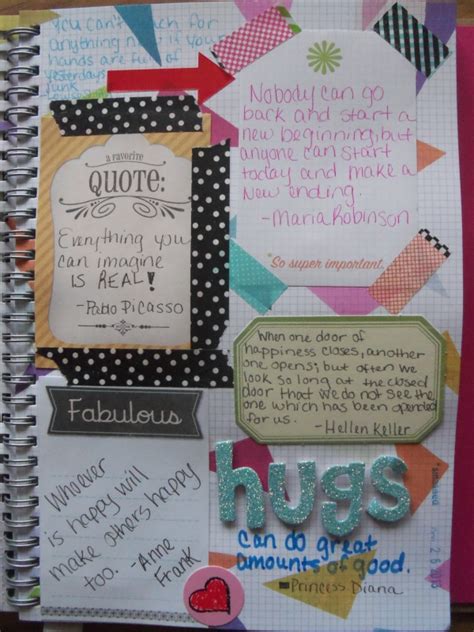 you can't reach for
anything new if your
hands are full of
yesterdays
junk
Nobody can go
back and start a
new beginning, but
anyone can start
today and make a
New ending.
-Maria Robinson
*So super important.
a favorite
QUOTE:
Everything you
can imagine
is REAL!
- Pablo Picasso
When one door of
happiness closes, another
one opens; but often we
look so long at the closed
door that we do not see the
one which has been opended
for us.
- Hellen Keller
Fabulous
Whoever
is happy will
make others happy
too. - Anne
Frank
hugs
can do great
amounts of good.
Princess Diana